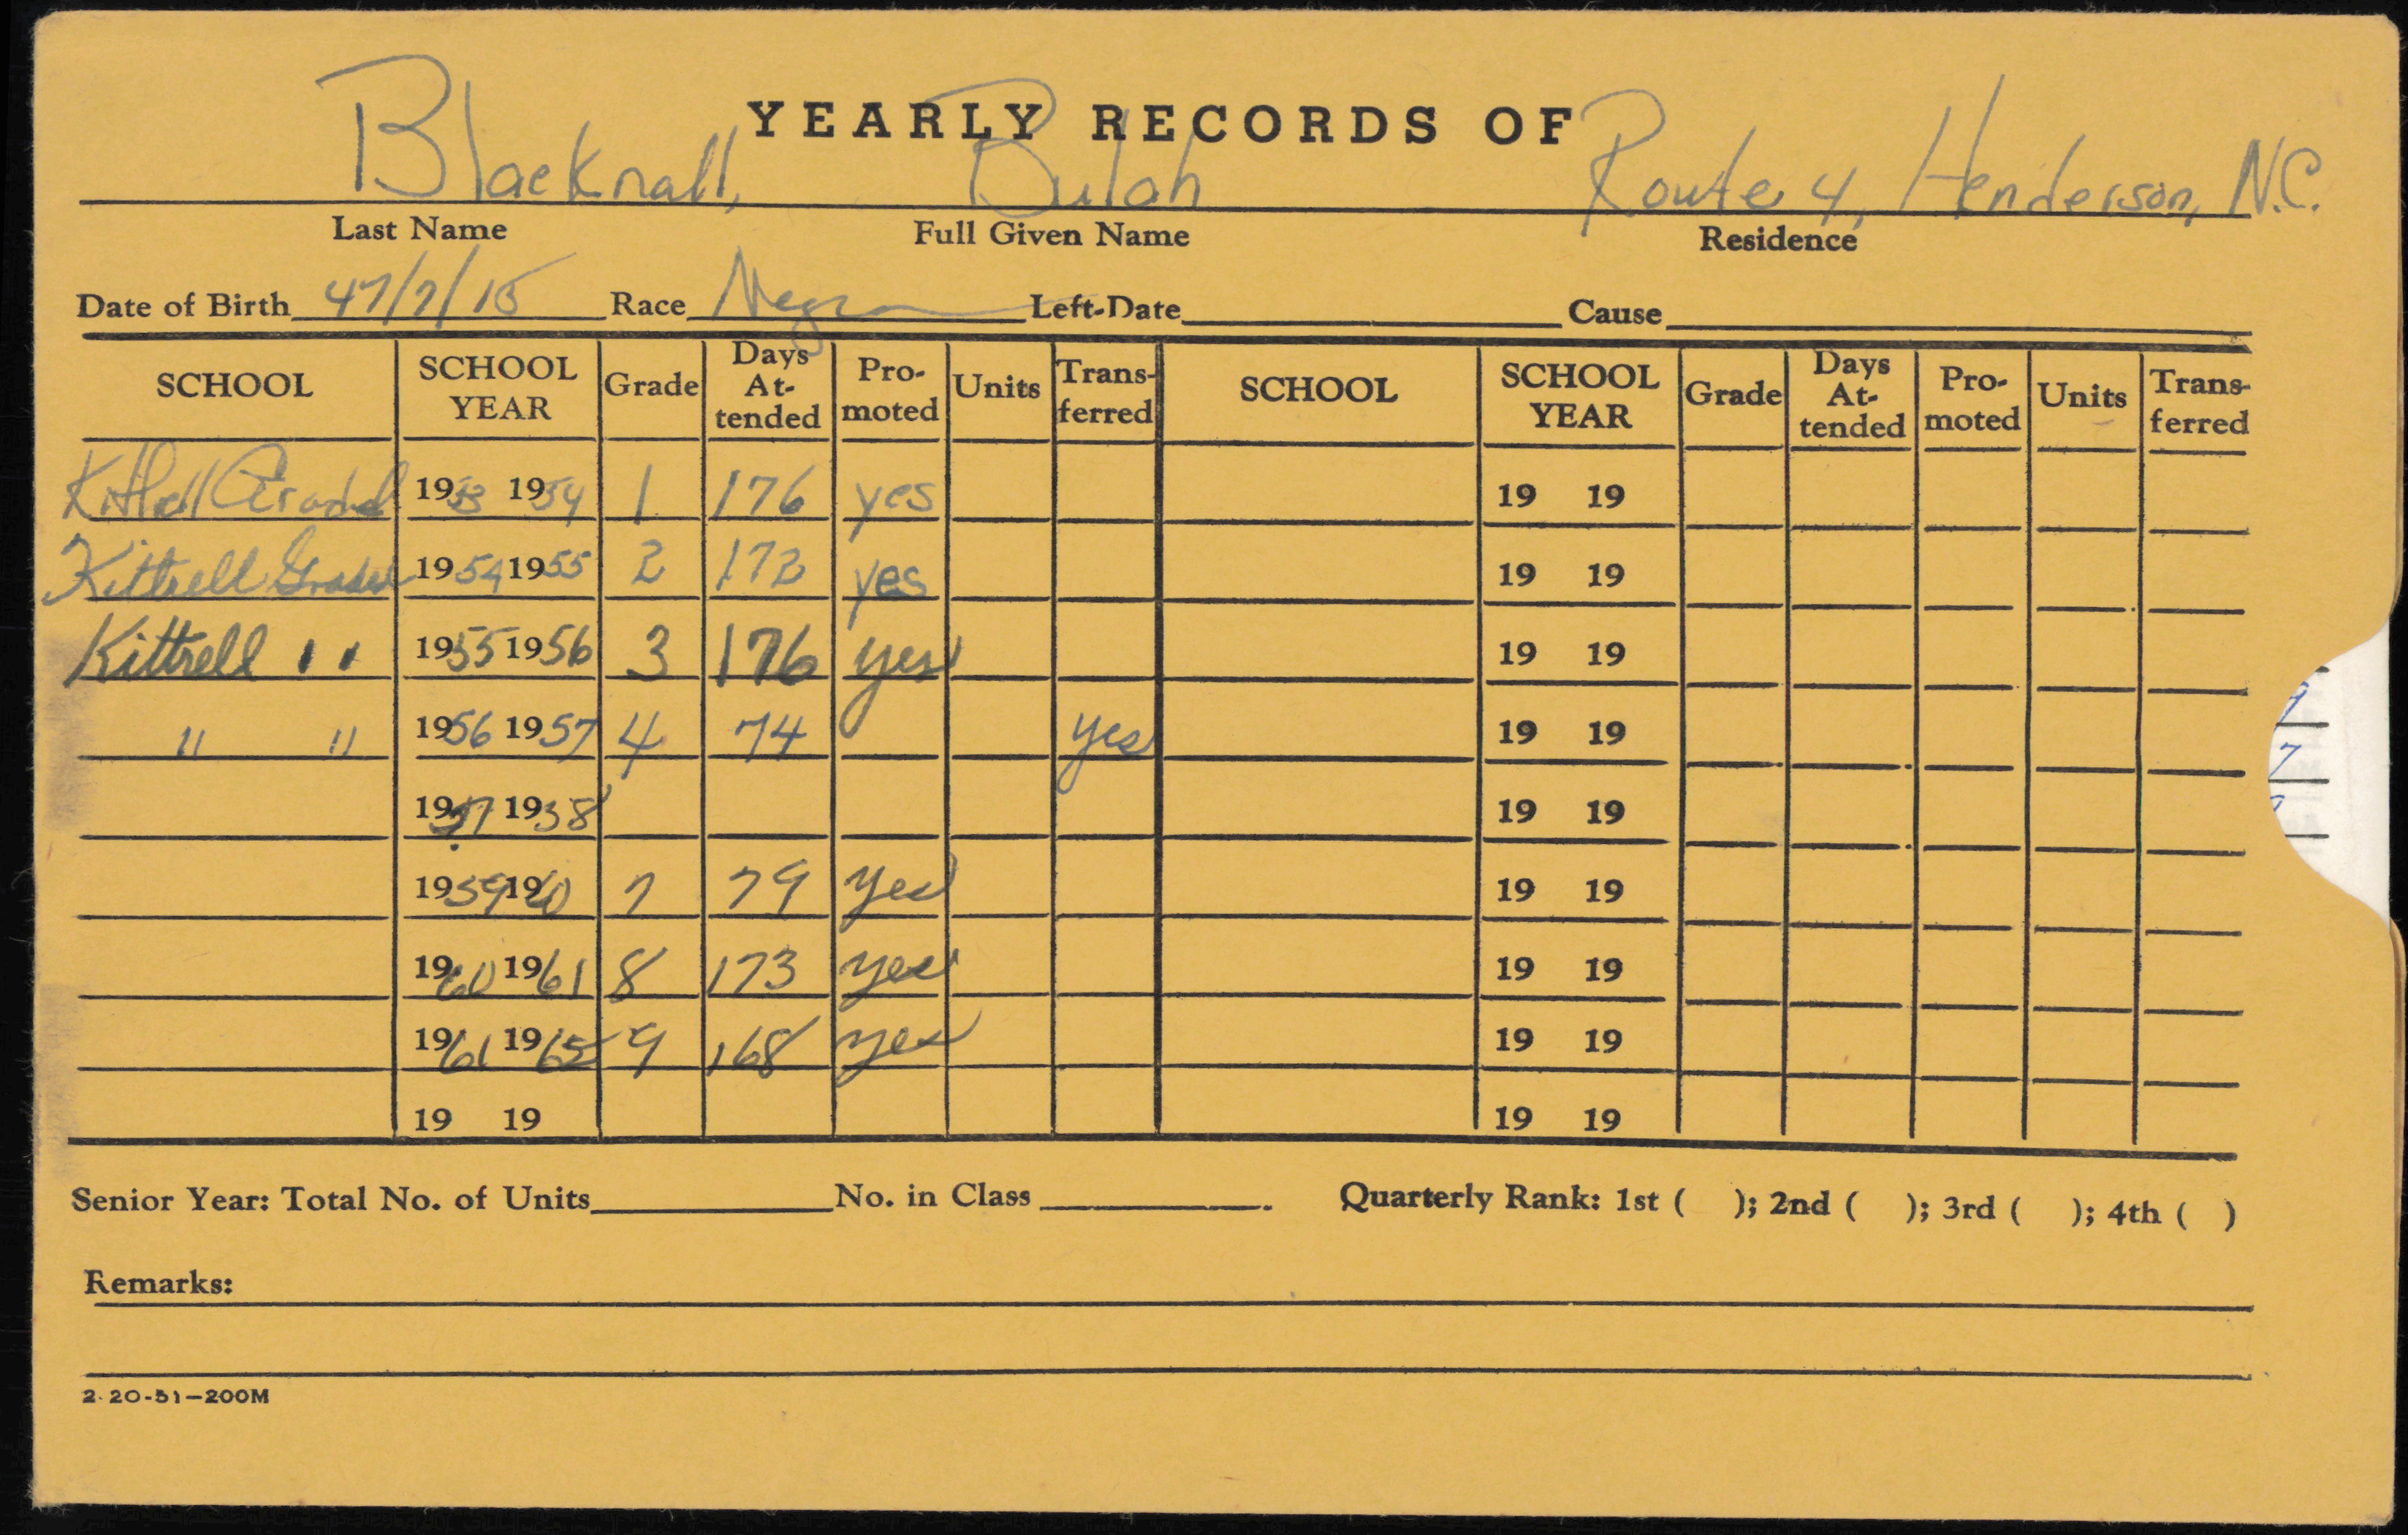 YEARLY RECORDS OF
Blacknall, Bulah Route 4, Henderson, N.C.
Last Name Full Given Name Residence
Date of Birth 47/7/15 Race Negro Left-Date Cause
SCHOOL SCHOOL YEAR Grade Days At-tended Pro-moted Units Trans-ferred SCHOOL SCHOOL YEAR Grade Days At-tended Pro-moted Units Trans-ferred
Kittrell Graded 1953 1954 1 176 yes 19 19
Kittrell Graded 1954 1955 2 172 yes 19 19
Kittrell " 1955 1956 3 176 yes 19 19
" " 1956 1957 4 74 yes 19 19
1957 1958 19 19
1959 1960 7 79 yes 19 19
1960 1961 8 173 yes 19 19
1961 1962 9 168 yes 19 19
19 19 19 19
Senior Year: Total No. of Units No. in Class . Quarterly Rank: 1st ( ); 2nd ( ); 3rd ( ); 4th ( )
Remarks:
2-20-51—200M